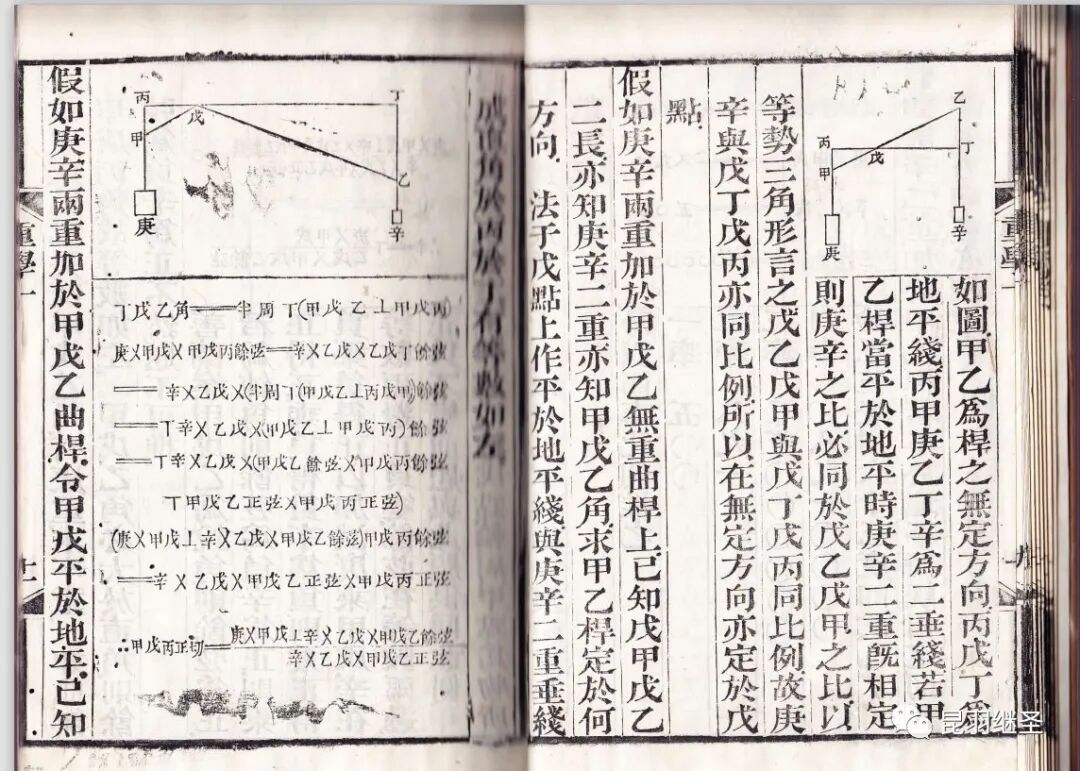 乙
丙
戊
丁
甲
庚
辛
如圖甲乙為桿之無定方向丙戊丁為
地平綫丙甲庚乙丁辛為二垂綫若甲
乙桿當平於地平時庚辛二重旣相定
則庚辛之比必同於戊乙戊甲之比以
等勢三角形言之戊乙戊甲與戊丁戊丙同比例故庚
辛與戊丁戊丙亦同比例所以在無定方向亦定於戊
點
假如庚辛兩重加於甲戊乙無重曲桿上已知戊甲戊乙
二長亦知庚辛二重亦知甲戊乙角求甲乙桿定於何
方向　法于戊點上作平於地平綫與庚辛二重垂綫
成直角於丙於丁有等數如左
丙
丁
戊
甲
乙
庚
辛
丁戊乙角═半周丅(甲戊乙丄甲戊丙)
庚乂甲戊乂甲戊丙餘弦═辛乂乙戊乂乙戊丁餘弦
═辛乂乙戊乂(半周丅(甲戊乙丄丙戊甲))餘弦
═丅辛乂乙戊乂(甲戊乙丄甲戊丙)餘弦
═丅辛乂乙戊乂(甲戊乙餘弦乂甲戊丙餘弦
丅甲戊乙正弦乂甲戊丙正弦)
(庚乂甲戊丄辛乂乙戊乂甲戊乙餘弦)甲戊丙餘弦
═辛乂乙戊乂甲戊乙正弦乂甲戊丙正弦
∴甲戊丙正切═庚乂甲戊丄辛乂乙戊乂甲戊乙餘弦
辛乂乙戊乂甲戊乙正弦
假如庚辛兩重加於甲戊乙曲桿令甲戊平於地平已知
重學一
十一
昆羽继圣